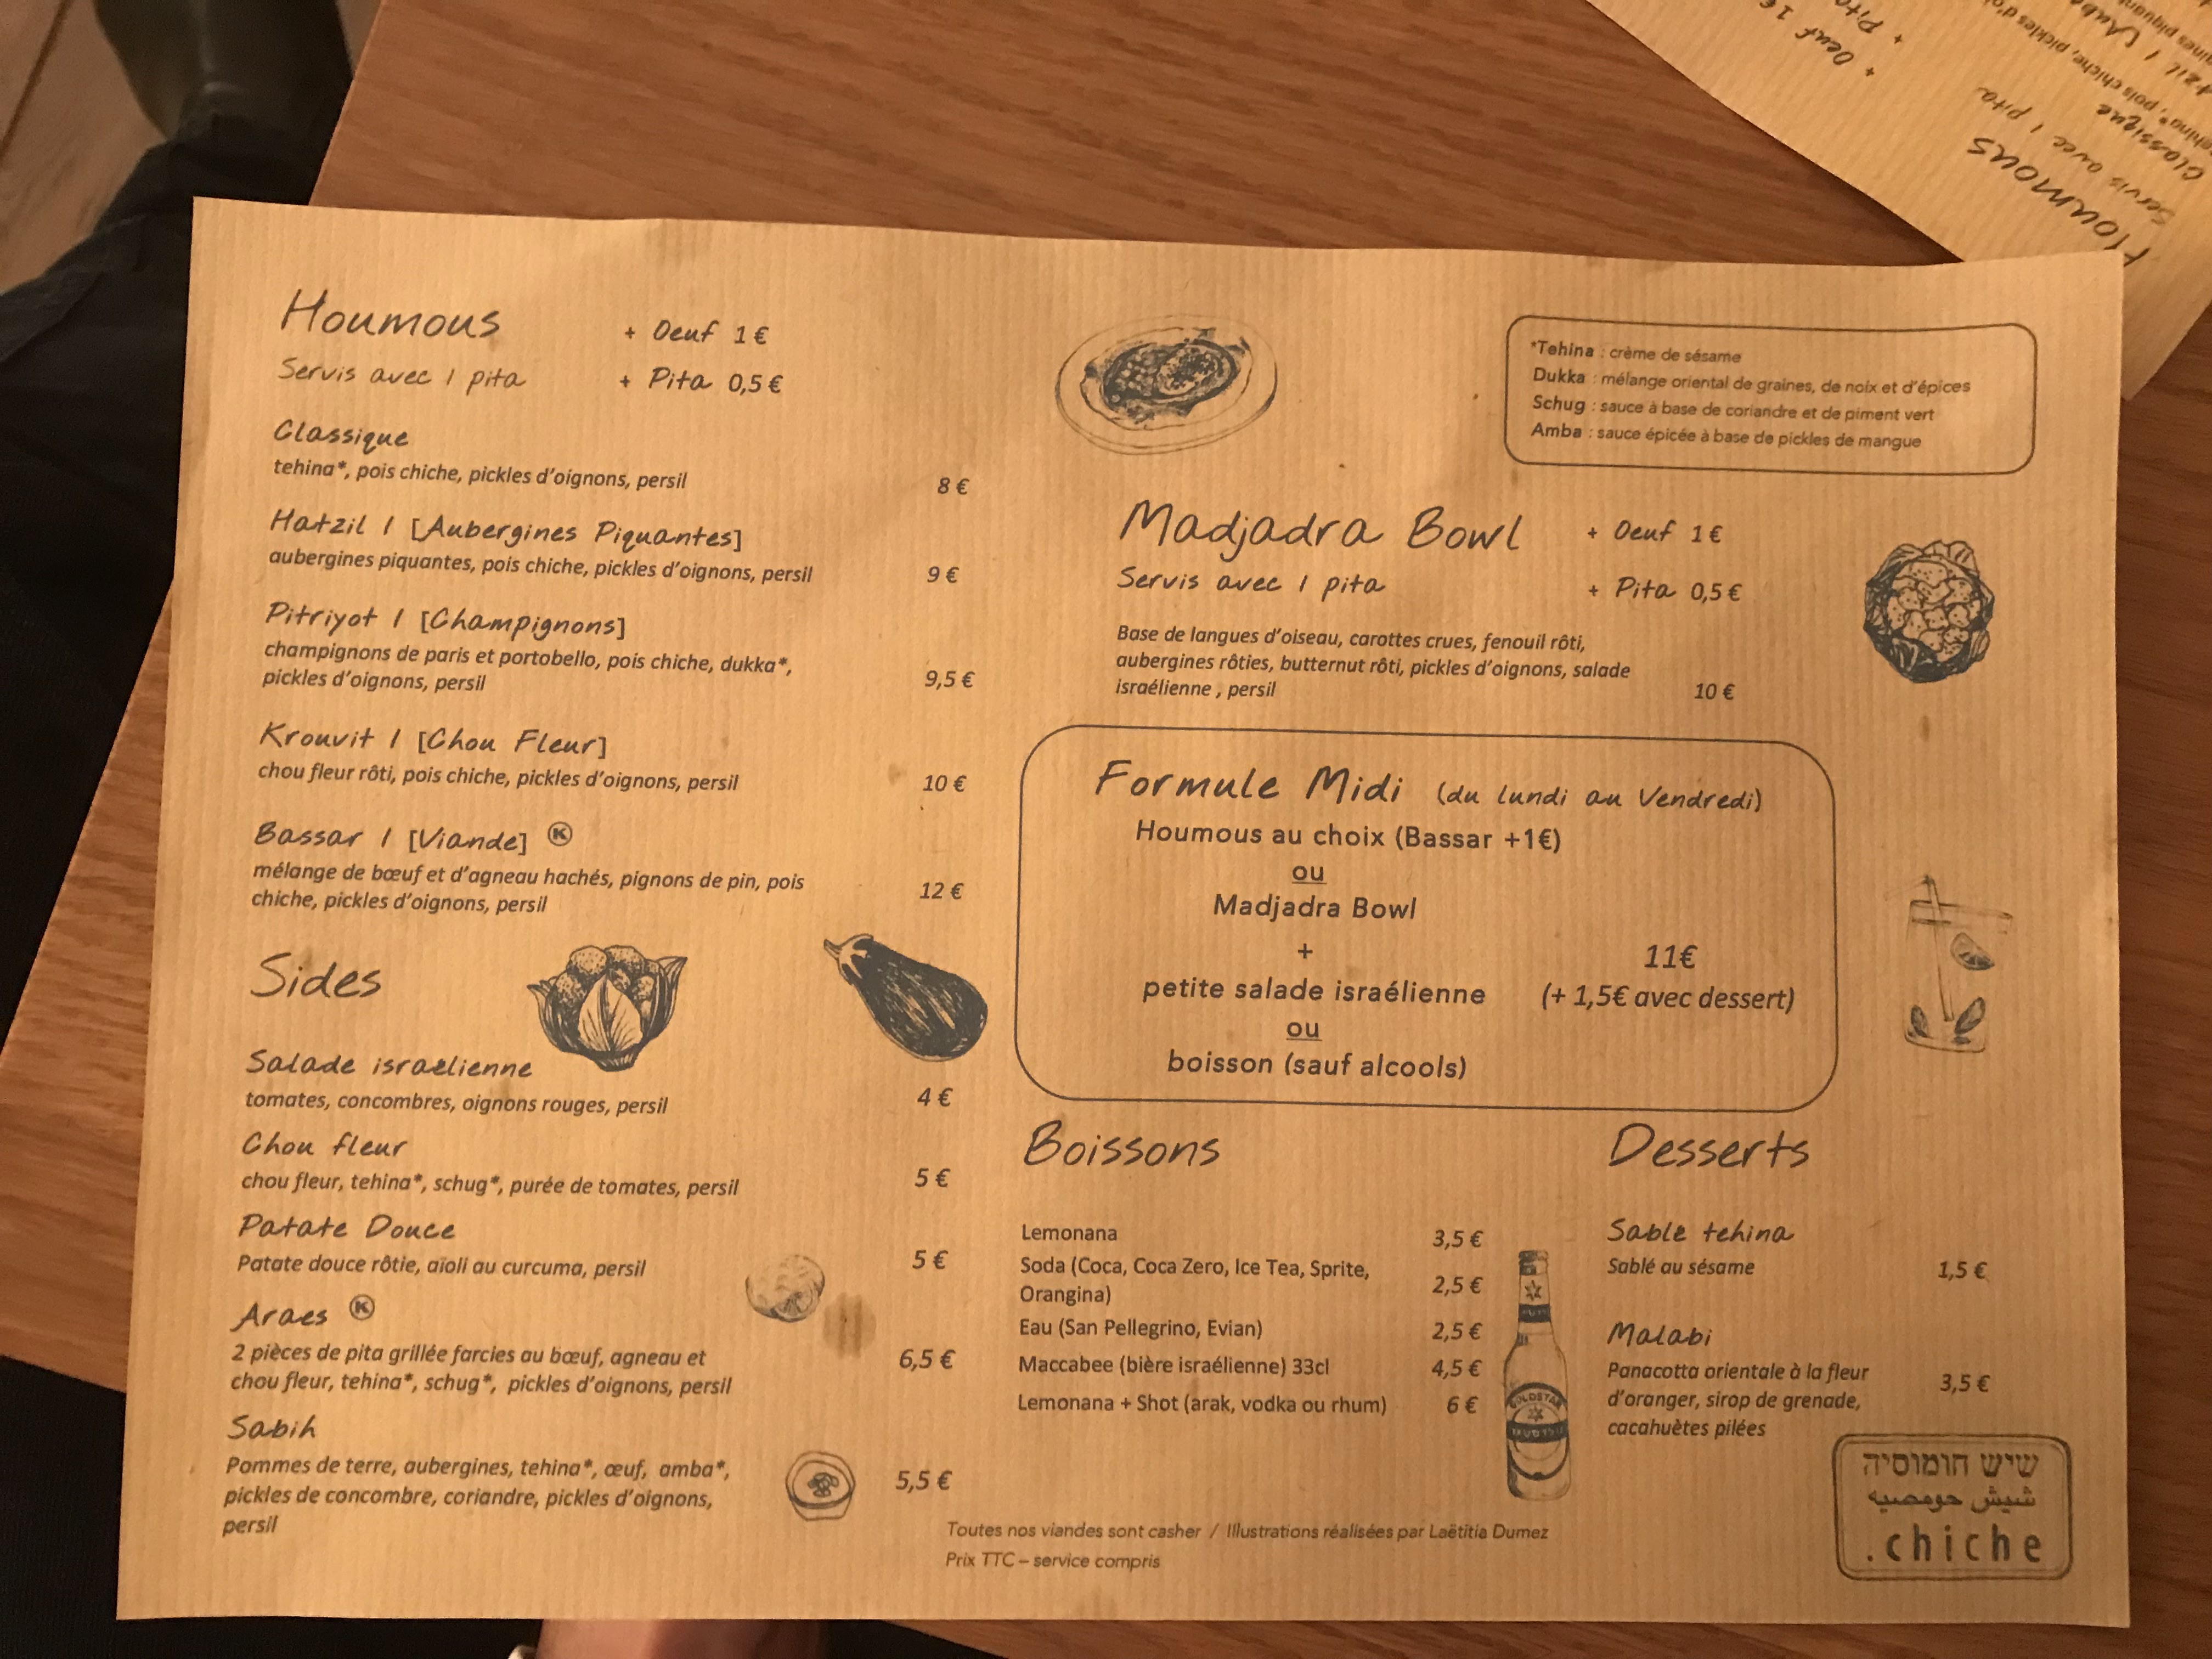 Houmous
+ Oeuf 1 €
Servis avec 1 pita
+ Pita 0,5 €
Classique
tehina*, pois chiche, pickles d'oignons, persil
8 €
Hatzil / [Aubergines Piquantes]
aubergines piquantes, pois chiche, pickles d'oignons, persil
9 €
Pitriyot / [Champignons]
champignons de paris et portobello, pois chiche, dukka*,
pickles d'oignons, persil
9,5 €
Krouvit / [Chou Fleur]
chou fleur rôti, pois chiche, pickles d'oignons, persil
10 €
Bassar / [Viande] K
mélange de bœuf et d'agneau hachés, pignons de pin, pois
chiche, pickles d'oignons, persil
12 €
Sides
Salade israélienne
tomates, concombres, oignons rouges, persil
4 €
Chou fleur
chou fleur, tehina*, schug*, purée de tomates, persil
5 €
Patate Douce
Patate douce rôtie, aïoli au curcuma, persil
5 €
Araes K
2 pièces de pita grillée farcies au bœuf, agneau et
chou fleur, tehina*, schug*, pickles d'oignons, persil
6,5 €
Sabih
Pommes de terre, aubergines, tehina*, œuf, amba*,
pickles de concombre, coriandre, pickles d'oignons,
persil
5,5 €
*Tehina : crème de sésame
Dukka : mélange oriental de graines, de noix et d'épices
Schug : sauce à base de coriandre et de piment vert
Amba : sauce épicée à base de pickles de mangue
Madjadra Bowl
+ Oeuf 1 €
Servis avec 1 pita
+ Pita 0,5 €
Base de langues d'oiseau, carottes crues, fenouil rôti,
aubergines rôties, butternut rôti, pickles d'oignons, salade
israélienne , persil
10 €
Formule Midi (du lundi au Vendredi)
Houmous au choix (Bassar +1€)
ou
Madjadra Bowl
+
petite salade israélienne
ou
boisson (sauf alcools)
11€
(+ 1,5€ avec dessert)
Boissons
Lemonana
3,5 €
Soda (Coca, Coca Zero, Ice Tea, Sprite,
Orangina)
2,5 €
Eau (San Pellegrino, Evian)
2,5 €
Maccabee (bière israélienne) 33cl
4,5 €
Lemonana + Shot (arak, vodka ou rhum)
6 €
GOLDSTAR
Desserts
Sablé tehina
Sablé au sésame
1,5 €
Malabi
Panacotta orientale à la fleur
d'oranger, sirop de grenade,
cacahuètes pilées
3,5 €
Toutes nos viandes sont casher / Illustrations réalisées par Laëtitia Dumez
Prix TTC – service compris
שיש חומוסיה
شيش حومصيه
.chiche
Houmous
Servis avec 1 pita
Classique
+ Oeuf 1€
+ Pita
pois chiche, pickles d'oi